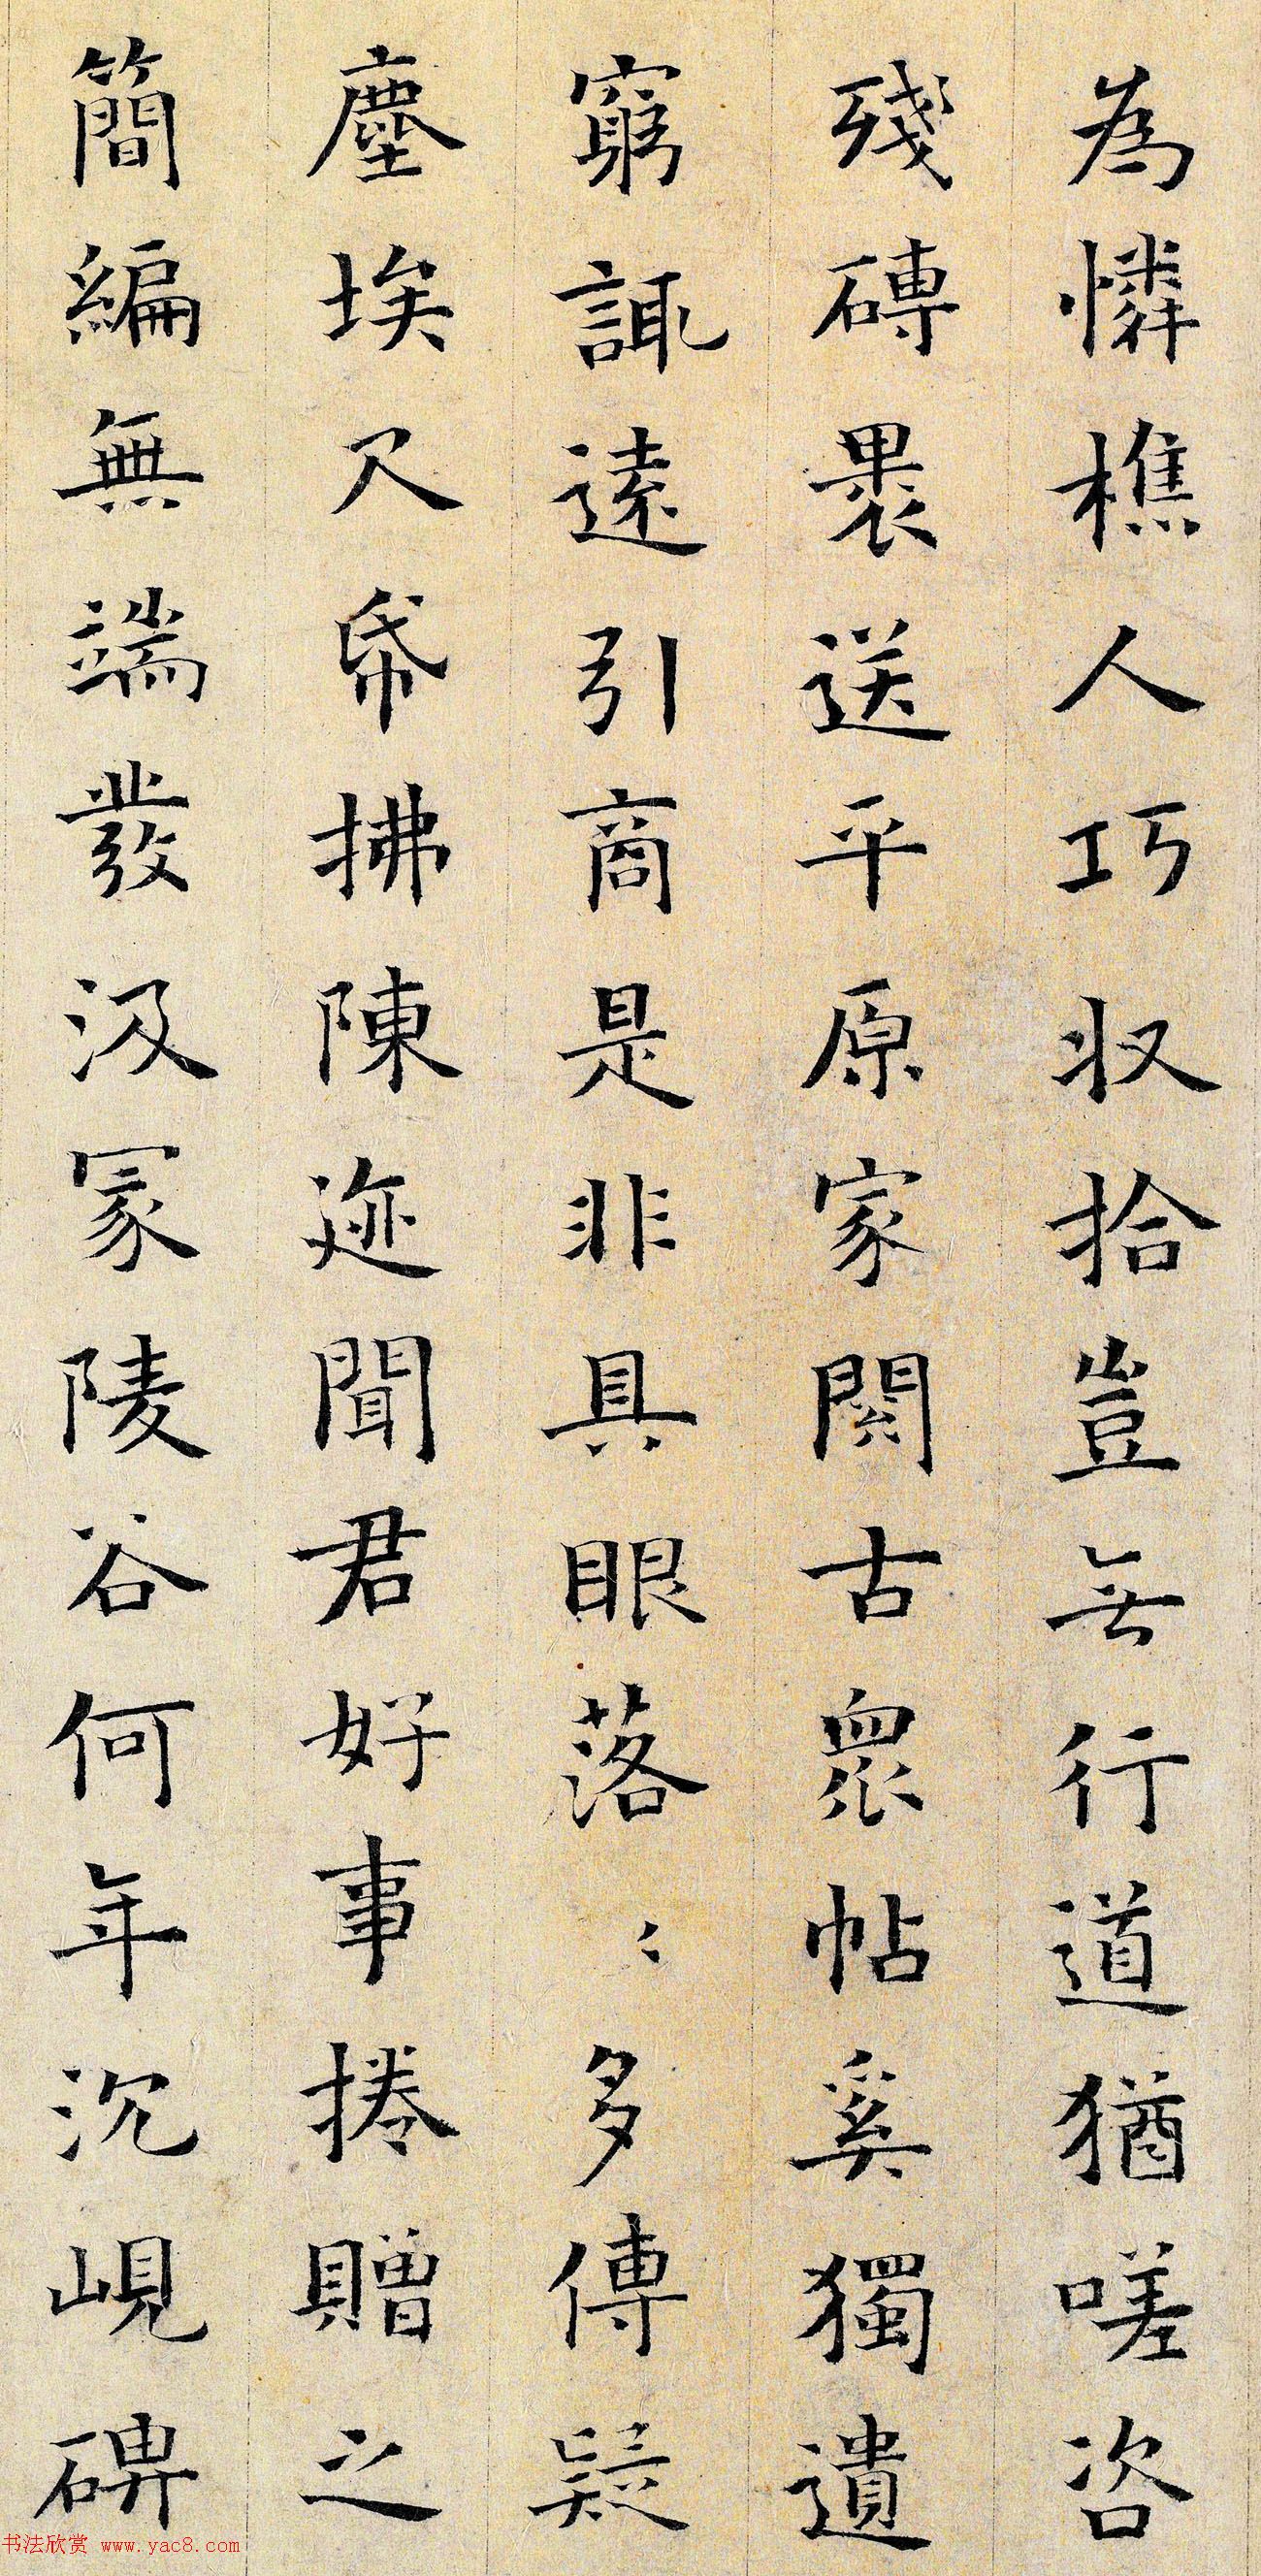 為憐樵人巧収拾豈無行道猶嗟咨
殘磚裹送平原家閱古眾帖奚獨遺
窮諏遠引商是非具眼落〻多傳疑
塵埃尺帋拂陳迹聞君好事捲贈之
簡編無端發汲冢陵谷何年沉峴碑
书法欣赏 www.yac8.com